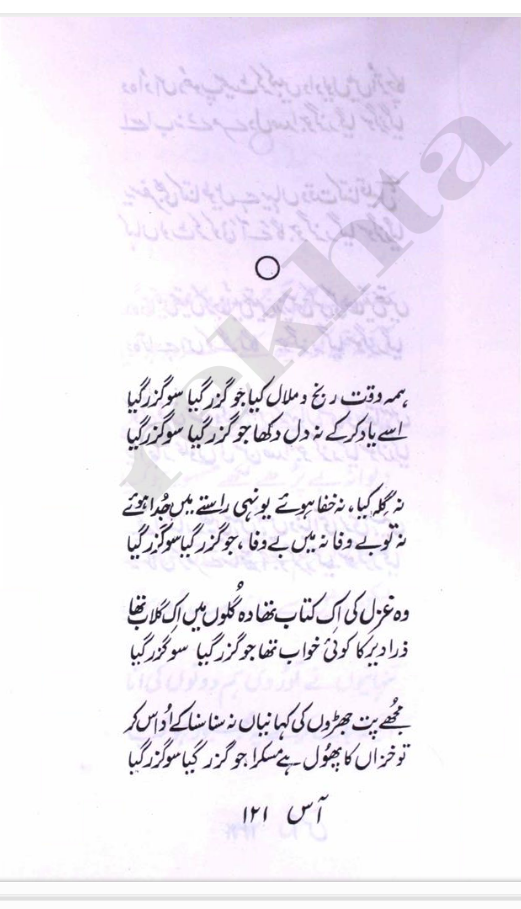 rekhta
ہمہ وقت رنج و ملال کیا جو گزر گیا سو گزر گیا
اسے یاد کر کے نہ دل دکھا جو گزر گیا سو گزر گیا
نہ گلہ کیا، نہ خفا ہوئے یونہی راستے میں جُدا ہوئے
نہ تو بے وفا نہ میں بے وفا، جو گزر گیا سو گزر گیا
وہ غزل کی اِک کتاب تھا وہ گُلوں میں اِک گلاب تھا
ذرا دیر کا کوئی خواب تھا جو گزر گیا سو گزر گیا
مجھے پت جھڑوں کی کہانیاں نہ سنا سنا کے اُداس کر
تو خزاں کا پھُول ہے مسکرا جو گزر گیا سو گزر گیا
آس ۱۲۱